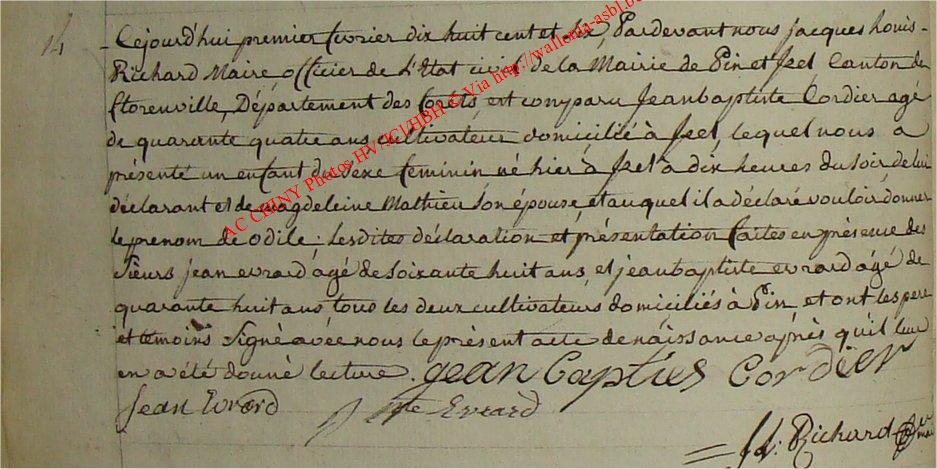 14 Cejourd'hui premier fevrier dix huit cent et dix, Pardevant nous jacques Louis
Richard Maire officier de L'Etat civil de la Mairie de Pin et Izel Canton de
florenville, Département des forêts, est comparu Jeanbaptiste Cordier agé
de quarante quatre ans cultivateur domicilié à Izel, lequel nous a
présenté un enfant du sexe feminin né hier à Izel à dix heures du soir de lui
déclarant et de magdeleine Mathieu son épouse, et auquel il a déclaré vouloir donner
le prenom de odile. Lesdites déclaration et présentation faites en présence des
sieurs jean evrard âgé de soixante huit ans et jeanbaptiste evrard âgé de
quarante huit ans tous les deux cultivateurs domiciliés à Pin et ont les pere
et temoins signé avec nous le présent acte de naissance après qu'il leur
en a été donné lecture. jean bapties Cordier
Jean Evrard
Evrard
Richard
AC CHINY Photos HV/JCl/HBH © Via http://wallonia-asbl.be